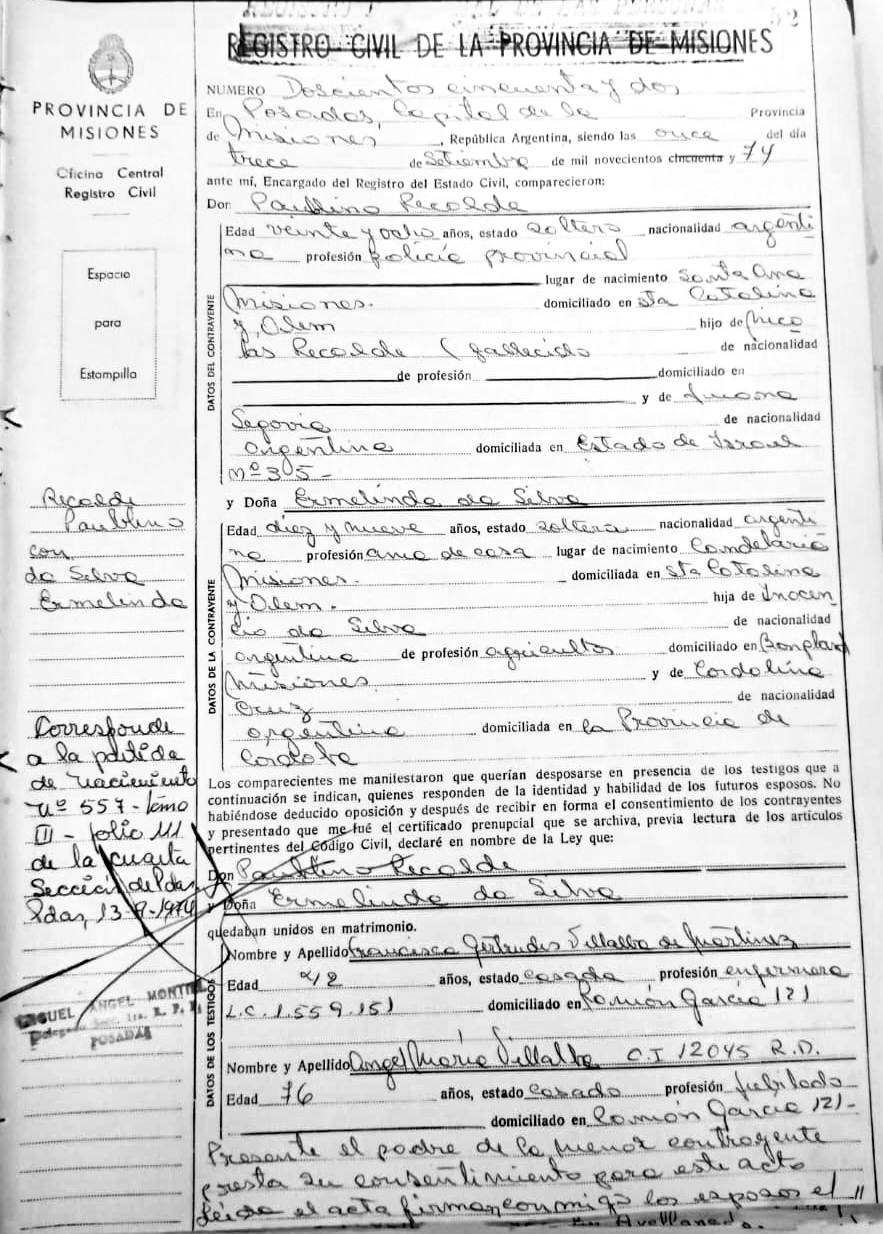 REGISTRO CIVIL DE LA PROVINCIA DE MISIONES
PROVINCIA DE
MISIONES
Oficina Central
Registro Civil
Espacio
para
Estampilla
NUMERO Doscientos cincuenta y dos
En Posadas, Capital de la Provincia
de Misiones, República Argentina, siendo las once del día
trece de Setiembre de mil novecientos cincuenta y 74
ante mí, Encargado del Registro del Estado Civil, comparecieron:
Don Paublino Recalde
DATOS DEL CONTRAYENTE
Edad veinte y ocho años, estado soltero nacionalidad argenti
na profesión policía provincial
lugar de nacimiento Santa Ana
Misiones. domiciliado en Sta Catalina
y Alem hijo de Nico
las Recalde (fallecido de nacionalidad
de profesión domiciliado en
y de Juana
Segovia de nacionalidad
argentina domiciliada en Estado de Israel
Nº 305-
Recalde
Paublino
con
da Silva
Ermelinda
y Doña Ermelinda da Silva
DATOS DE LA CONTRAYENTE
Edad diez y nueve años, estado soltera nacionalidad argenti
na profesión ama de casa lugar de nacimiento Candelaria
Misiones. domiciliada en Sta Catalina
y Alem. hija de Inocen
cio da Silva de nacionalidad
argentina de profesión agricultor domiciliado en Bonpland
Misiones y de Cordolina
Cruz de nacionalidad
argentina domiciliada en la Provincia de
Cordoba
Corresponde
a la partida
de nacimiento
Nº 557 - tomo
III - folio 111
de la cuarta
Sección de Pdas
Pdas, 13-9-1974
MIGUEL ANGEL
POSADAS
Los comparecientes me manifestaron que querían desposarse en presencia de los testigos que a
continuación se indican, quienes responden de la identidad y habilidad de los futuros esposos. No
habiéndose deducido oposición y después de recibir en forma el consentimiento de los contrayentes
y presentado que me fué el certificado prenupcial que se archiva, previa lectura de los artículos
pertinentes del Código Civil, declaré en nombre de la Ley que:
Don Paublino Recalde
y Doña Ermelinda da Silva
quedaban unidos en matrimonio.
DATOS DE LOS TESTIGOS
Nombre y Apellido Francisca Gertrudis Villalba de Martinez
Edad 42 años, estado casada profesión enfermera
L.C. 1.559.151 domiciliado en Ramón García 121
Nombre y Apellido Angel María Villalba C.I 12045 R.D.
Edad 76 años, estado casado profesión jubilado
domiciliado en Ramón García 121-
Presente el padre de la menor contrayente
presta su consentimiento para este acto
Leída el acta firman conmigo los esposos el
Avellaneda.